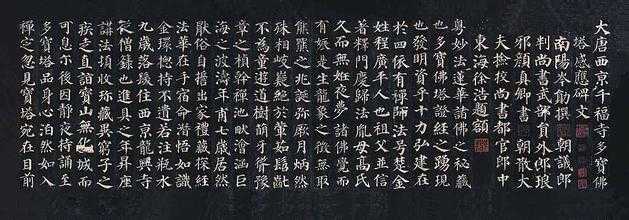 大唐西京千福寺多寶佛
塔感應碑文
南陽岑勛撰 朝議郎
判尚書武部員外郎琅
邪顏真卿書 朝散大
夫撿校尚書都官郎中
東海徐浩題額
粵妙法蓮華諸佛之秘藏
也多寶佛塔證經之踴現
也發明資乎十力弘建在
於四依有禪師法號楚金
姓程廣平人也祖父並信
著釋門慶歸法胤母高氏
久而無妊夜夢諸佛覺而
有娠是生龍象之徵無取
熊羆之兆誕彌厥月炳然
殊相岐嶷絕於葷茹髫齔
不為童遊道樹萌牙聳豫
章之楨幹禪池畎澮涵巨
海之波濤年甫七歲居然
厭俗自誓出家禮藏探經
法華在手宿命潛悟如識
金環總持不遺若注瓶水
九歲落髮住西京龍興寺
從僧籙也進具之年昇座
講法頃收珍藏異窮子之
疾走直詣寶山無化城而
可息尔後因靜夜持誦至
多寶塔品身心泊然如入
禪定忽見寶塔宛在目前